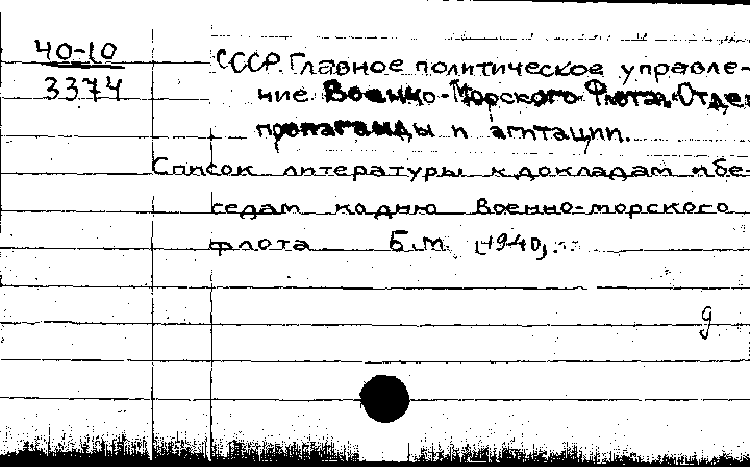 40-10
3374
СССР. Главное политическое управле-
ние Военно-Морского Флота. Отдел
пропаганды и агитации.
Список литературы к докладам и бе-
седам ко дню Военно-морского
флота Б.м. [1940].
9